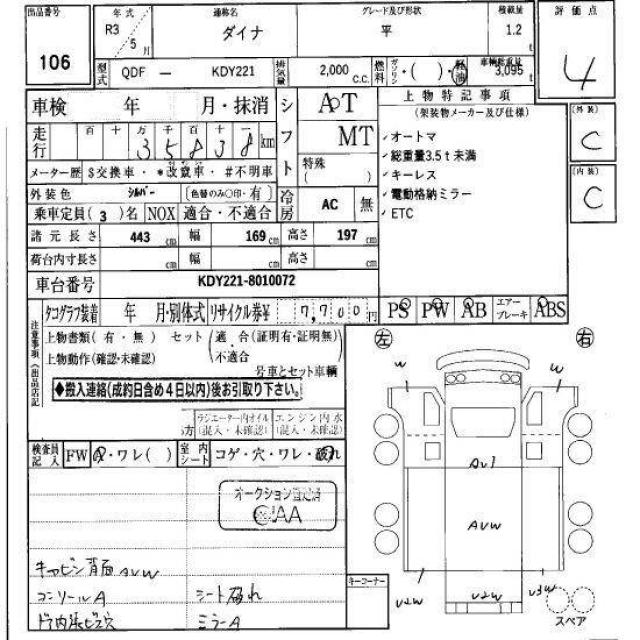 出品番号 年式 通称名 グレード及び形状 積載量 評価点
106 R3 / 5月 ダイナ 平 1.2 t 4
型式 QDF － KDY221 排気量 2,000 C.C. 燃料 ガソリン・( )・軽油 車輌総重量 3,095 t
車検 年 月・抹消 シフト AT 上物特記事項 (外装)
(架装物メーカー及び仕様) C
走行 百 十 万 千 百 十 一 35838 km MT ✓オートマ
✓総重量3.5ｔ未満 (内装)
メーター歴 $交換車・*改竄車・#不明車 特殊 ( ) ✓キーレス C
外装色 シルバー (色替のみ○印・有) 冷房 AC 無 ✓電動格納ミラー
乗車定員( 3 )名 NOX 適合・不適合 ✓ETC
諸元長さ 443 cm 幅 169 cm 高さ 197 cm
荷台内寸長さ cm 幅 cm 高さ cm
車台番号 KDY221-8010072
タコグラフ装着 年 月・別体式 リサイクル券¥ 7,700 円 PS PW AB エアーブレーキ ABS
注意事項(出品店記
上物書類(有・無) セット(適合(証明有・証明無)
上物動作(確認・未確認) ・不適合
号車とセット車輌
◆搬入連絡(成約日含め４日以内)後お引取り下さい。
ラジエーター内オイル エンジン内水
方 (混入・未確認) (混入・未確認)
検査員記入 FW A・ワレ( ) 室内シート コゲ・穴・ワレ・破れ
オークション査定済
CAA
キャビン背面 AVW
コンソールA シート破れ
ドア内張ビス穴 ミラーA
キーコーナー
左 右
W W
AV1
AVW
U2W U2W U3W
スペア